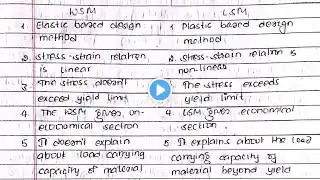 WSM LSM
1 Elastic based design method 1. Plastic based design method.
2. stress-strain relation is linear 2. stress-strain relation is non-linear
3 The stress doesn't exceed yield limit 3 The stress exceeds yield limit.
4 The WSM gives un-economical section 4. LSM gives economical section.
5 It doesn't explain about load carrying capacity of material 5 It explains about the load carrying capacity of material beyond yield